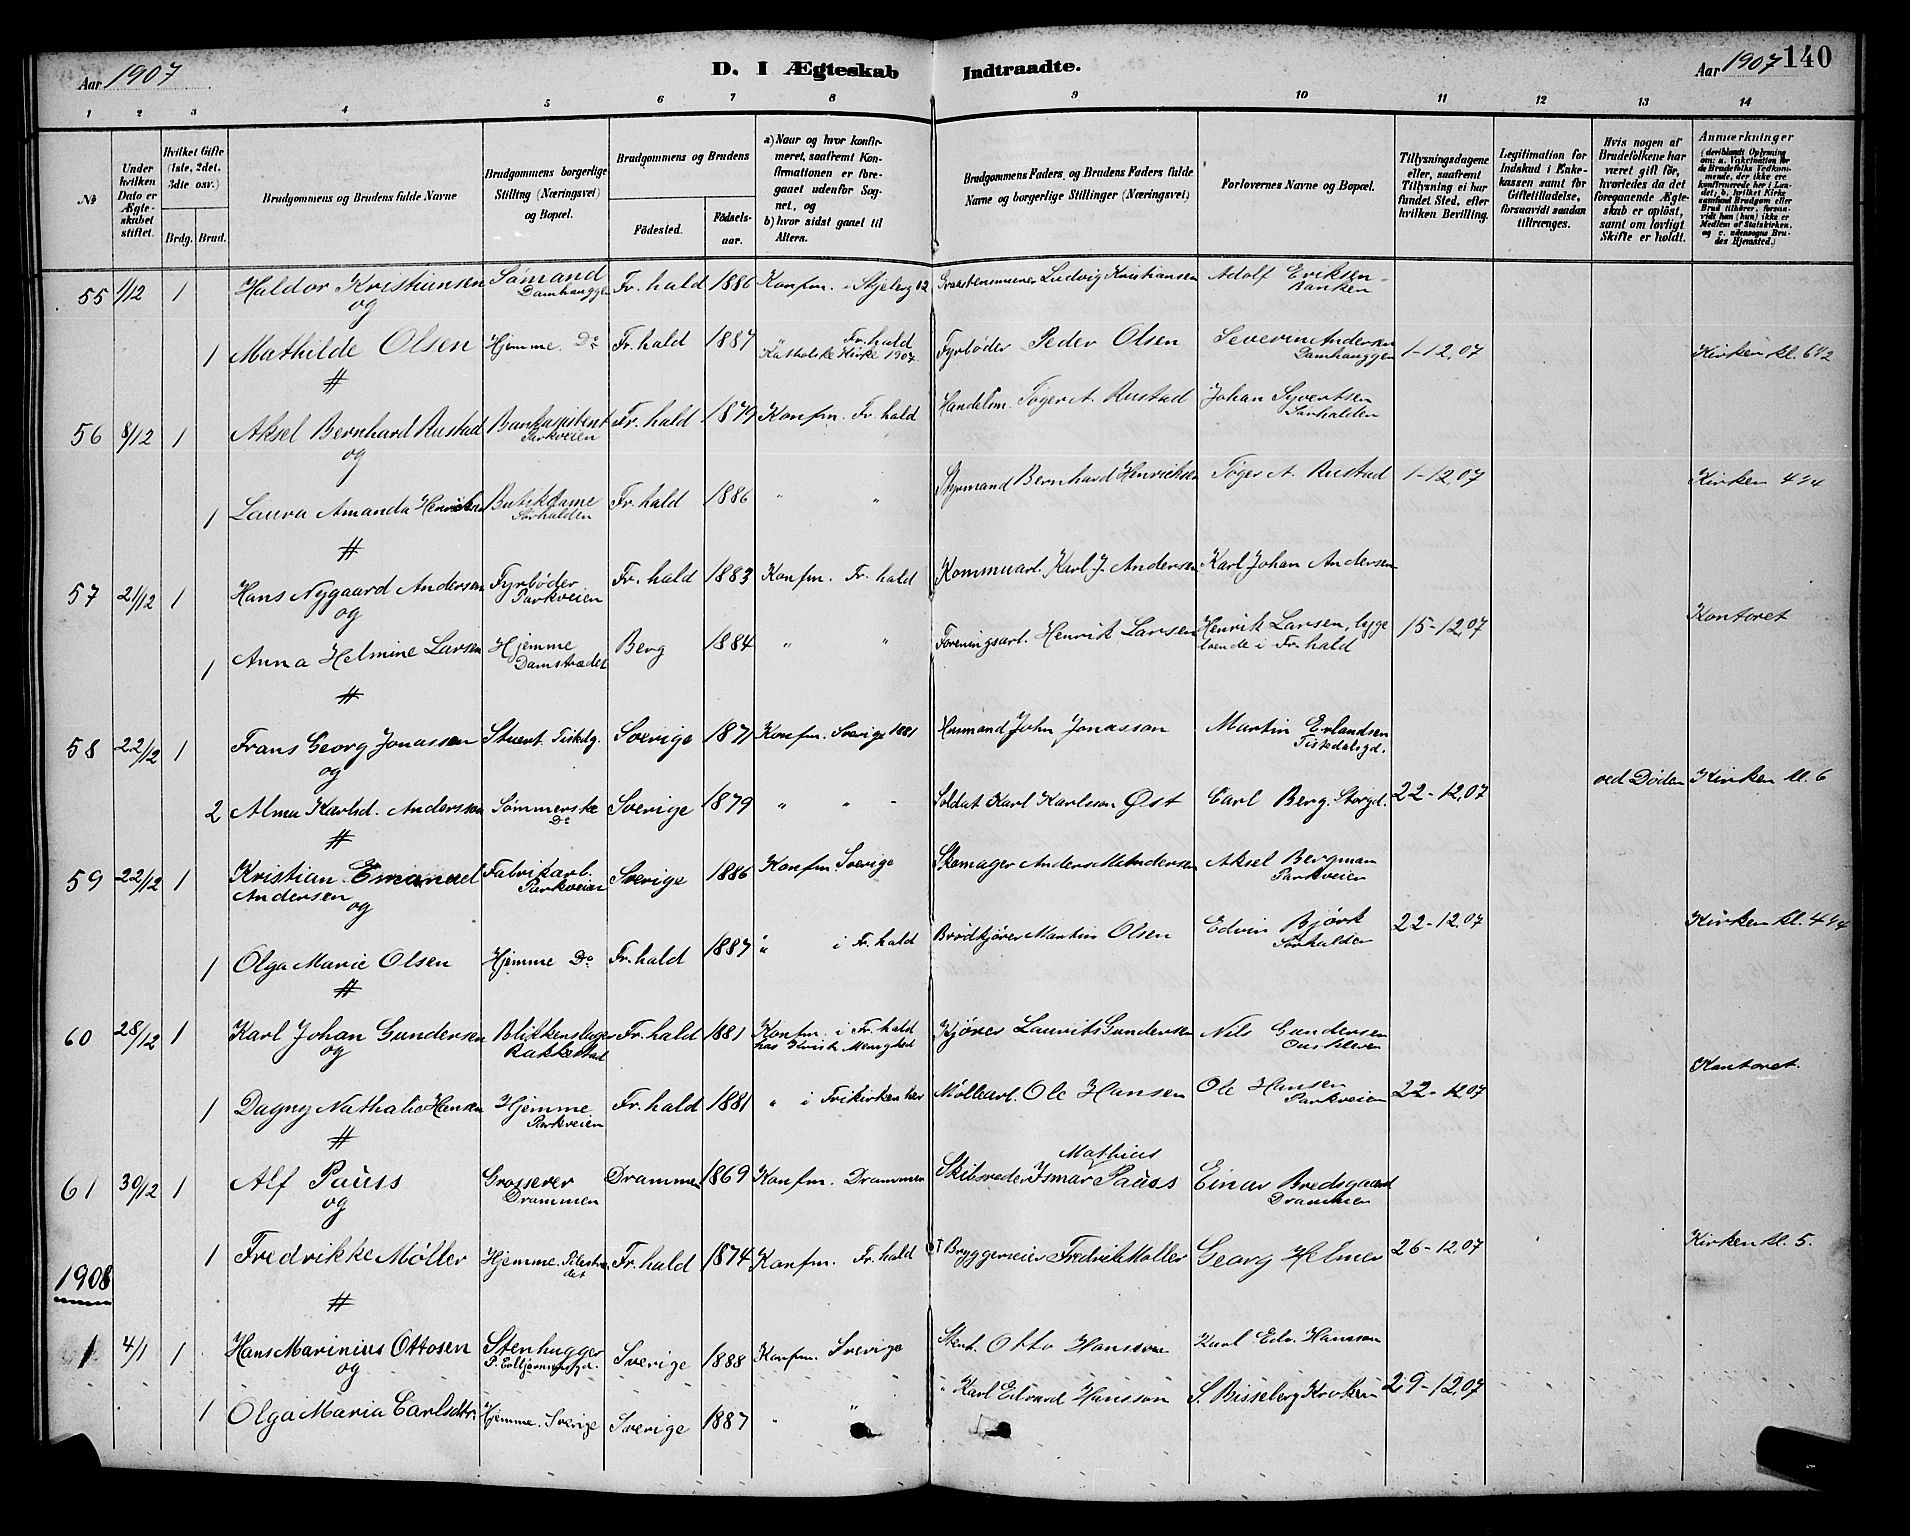 Aar 1907
D. I Ægteskab Indtraadte.
Aar 1907 140
1 2 3 4 5 6 7 8 9 10 11 12 13 14
№
Under hvilken Dato er Ægteskabet stiftet.
Hvilket Gifte (1ste, 2det, 3die osv.)
Brdg. Brud.
Brudgommens og Brudens fulde Navne
Brudgommens borgerlige Stilling (Næringsvei) og Bopæl.
Brudgommens og Brudens
Fødested.
Fødselsaar.
a) Naar og hvor konfirmeret, saafremt Konfirmationen er foregaaet udenfor Sognet, og
b) hvor sidst gaaet til Alters.
Brudgommens Faders, og Brudens Faders fulde Navne og borgerlige Stillinger (Næringsvei)
Forlovernes Navne og Bopæl.
Tillysningsdagene eller, saafremt Tillysning ei har fundet Sted, efter hvilken Bevilling.
Legitimation for Indskud i Enkekassen samt for Giftetilladelse, forsaavidt saadan tiltrænges.
Hvis nogen af Brudefolkene har været gift før, hvorledes da det foregaaende Ægteskab er opløst, samt om lovligt Skifte er holdt.
Anmærkninger
(deriblandt Oplysning om: a. Vakcination for de Brudefolks Vedkommende, der ikke ere konfirmerede her i Landet; b. hvilket Kirkesamfund Brudgom eller Brud tilhører, forsaavidt han (hun) ikke er Medlem af Statskirken, og c. udensogns Brudes Hjemsted.)
55 1/12 1 Haldor Kristiansen Sømand Damhauggen Fr.hald 1886 Konfm. i Skjeberg 02 Ludvig Kristiansen Adolf Eriksen Banken
og
1 Mathilde Olsen Hjemme Do Fr.hald 1887 Fr.hald Katholske Kirke 1907 Fyrbøder Peder Olsen Severin Andersen Damhauggen 1-12.07 Kirken kl. 6 1/2
#
56 8/12 1 Aksel Bernhard Rustad Parkveien Fr.hald 1879 Konfm. Fr.hald Handelsm. Tøger A. Rustad Johan Syvertsen Sørhalden
og
1 Laura Amanda Henriksen Butikdame Sørhalden Fr.hald 1886 " " Styrmand Bernhard Henriksen Tøger A. Rustad 1-12.07 Kirken 4 1/4
#
57 21/12 1 Hans Nygaard Andersen Fyrbøder Parkveien Fr.hald 1883 Konfm. Fr.hald Kommuarb. Karl J. Andersen Karl Johan Andersen
og
1 Anna Helmine Larsen Hjemme Damstrædet Berg 1884 " " Foreningsarb. Henrik Larsen Henrik Larsen, begge boende i Fr.hald 15-12.07 Kontoret
#
58 22/12 1 Frans Georg Jonassen Stuert Sverige 1871 Konfm. Sverige 1881 John Jonasson Martin Erlandsen Tistedalsgd.
og
2 Alma Karlsd. Andersson Sømmerske Do Sverige 1879 " " Soldat Karl Karlsson Øst Carl Berg. Storgd. 22-12.07 ved Døden Kirken kl. 6
#
59 22/12 1 Kristian Emanuel Andersen Fabrikarb. Parkveien Sverige 1886 Konfm. Sverige Skomager Anders M Andersen Aksel Bergman Parkveien
og
1 Olga Marie Olsen Hjemme Do Fr.hald 1887 " i Fr.hald Brødkjører Martin Olsen Edvin Bjørk Sørhalden 22-12.07 Kirken kl. 4 1/4
#
60 28/12 1 Karl Johan Gundersen Blikkenslager Rakkestad Fr.hald 1881 Konfm. i Fr.hald Menighed Kjører Laurits Gundersen Nils Gundersen
og
1 Dagny Nathalie Hansen Hjemme Parkveien Fr.hald 1881 " i Frikirken her Møllearb. Ole Hansen Ole Hansen Parkveien 22-12.07 Kontoret.
#
61 30/12 1 Alf Pauss Grosserer Drammen Drammen 1869 Konfm. Drammen Skibsreder Ismar Mathius Pauss Einar Bredsgaard Drammen
og
1 Fredrikke Møller Hjemme Pilestrædet Fr.hald 1874 Konfm. Fr.hald Bryggerieier Fredrik Møller Georg Helmer 26-12.07 Kirken kl. 5.
1908
#
1 4/1 1 Hans Marinius Ottosen Stenhugger Sverige 1888 Konfm. Sverige Stenh. Otto Hansson Karl Edv. Hansson
og
1 Olga Maria Carlsdtr. Hjemme. Sverige Sverige 1887 " " " Karl Edvard Hansson S. Bisseberg Kroken 29-12.07